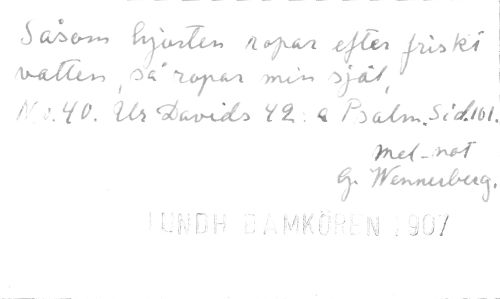 Såsom hjorten ropar efter friskt
vatten, så ropar min själ,
No. 40. Ur Davids 42:a Psalm. Sid. 101.
mel-not
G. Wennerberg.
LUNDH DAMKÖREN 1907